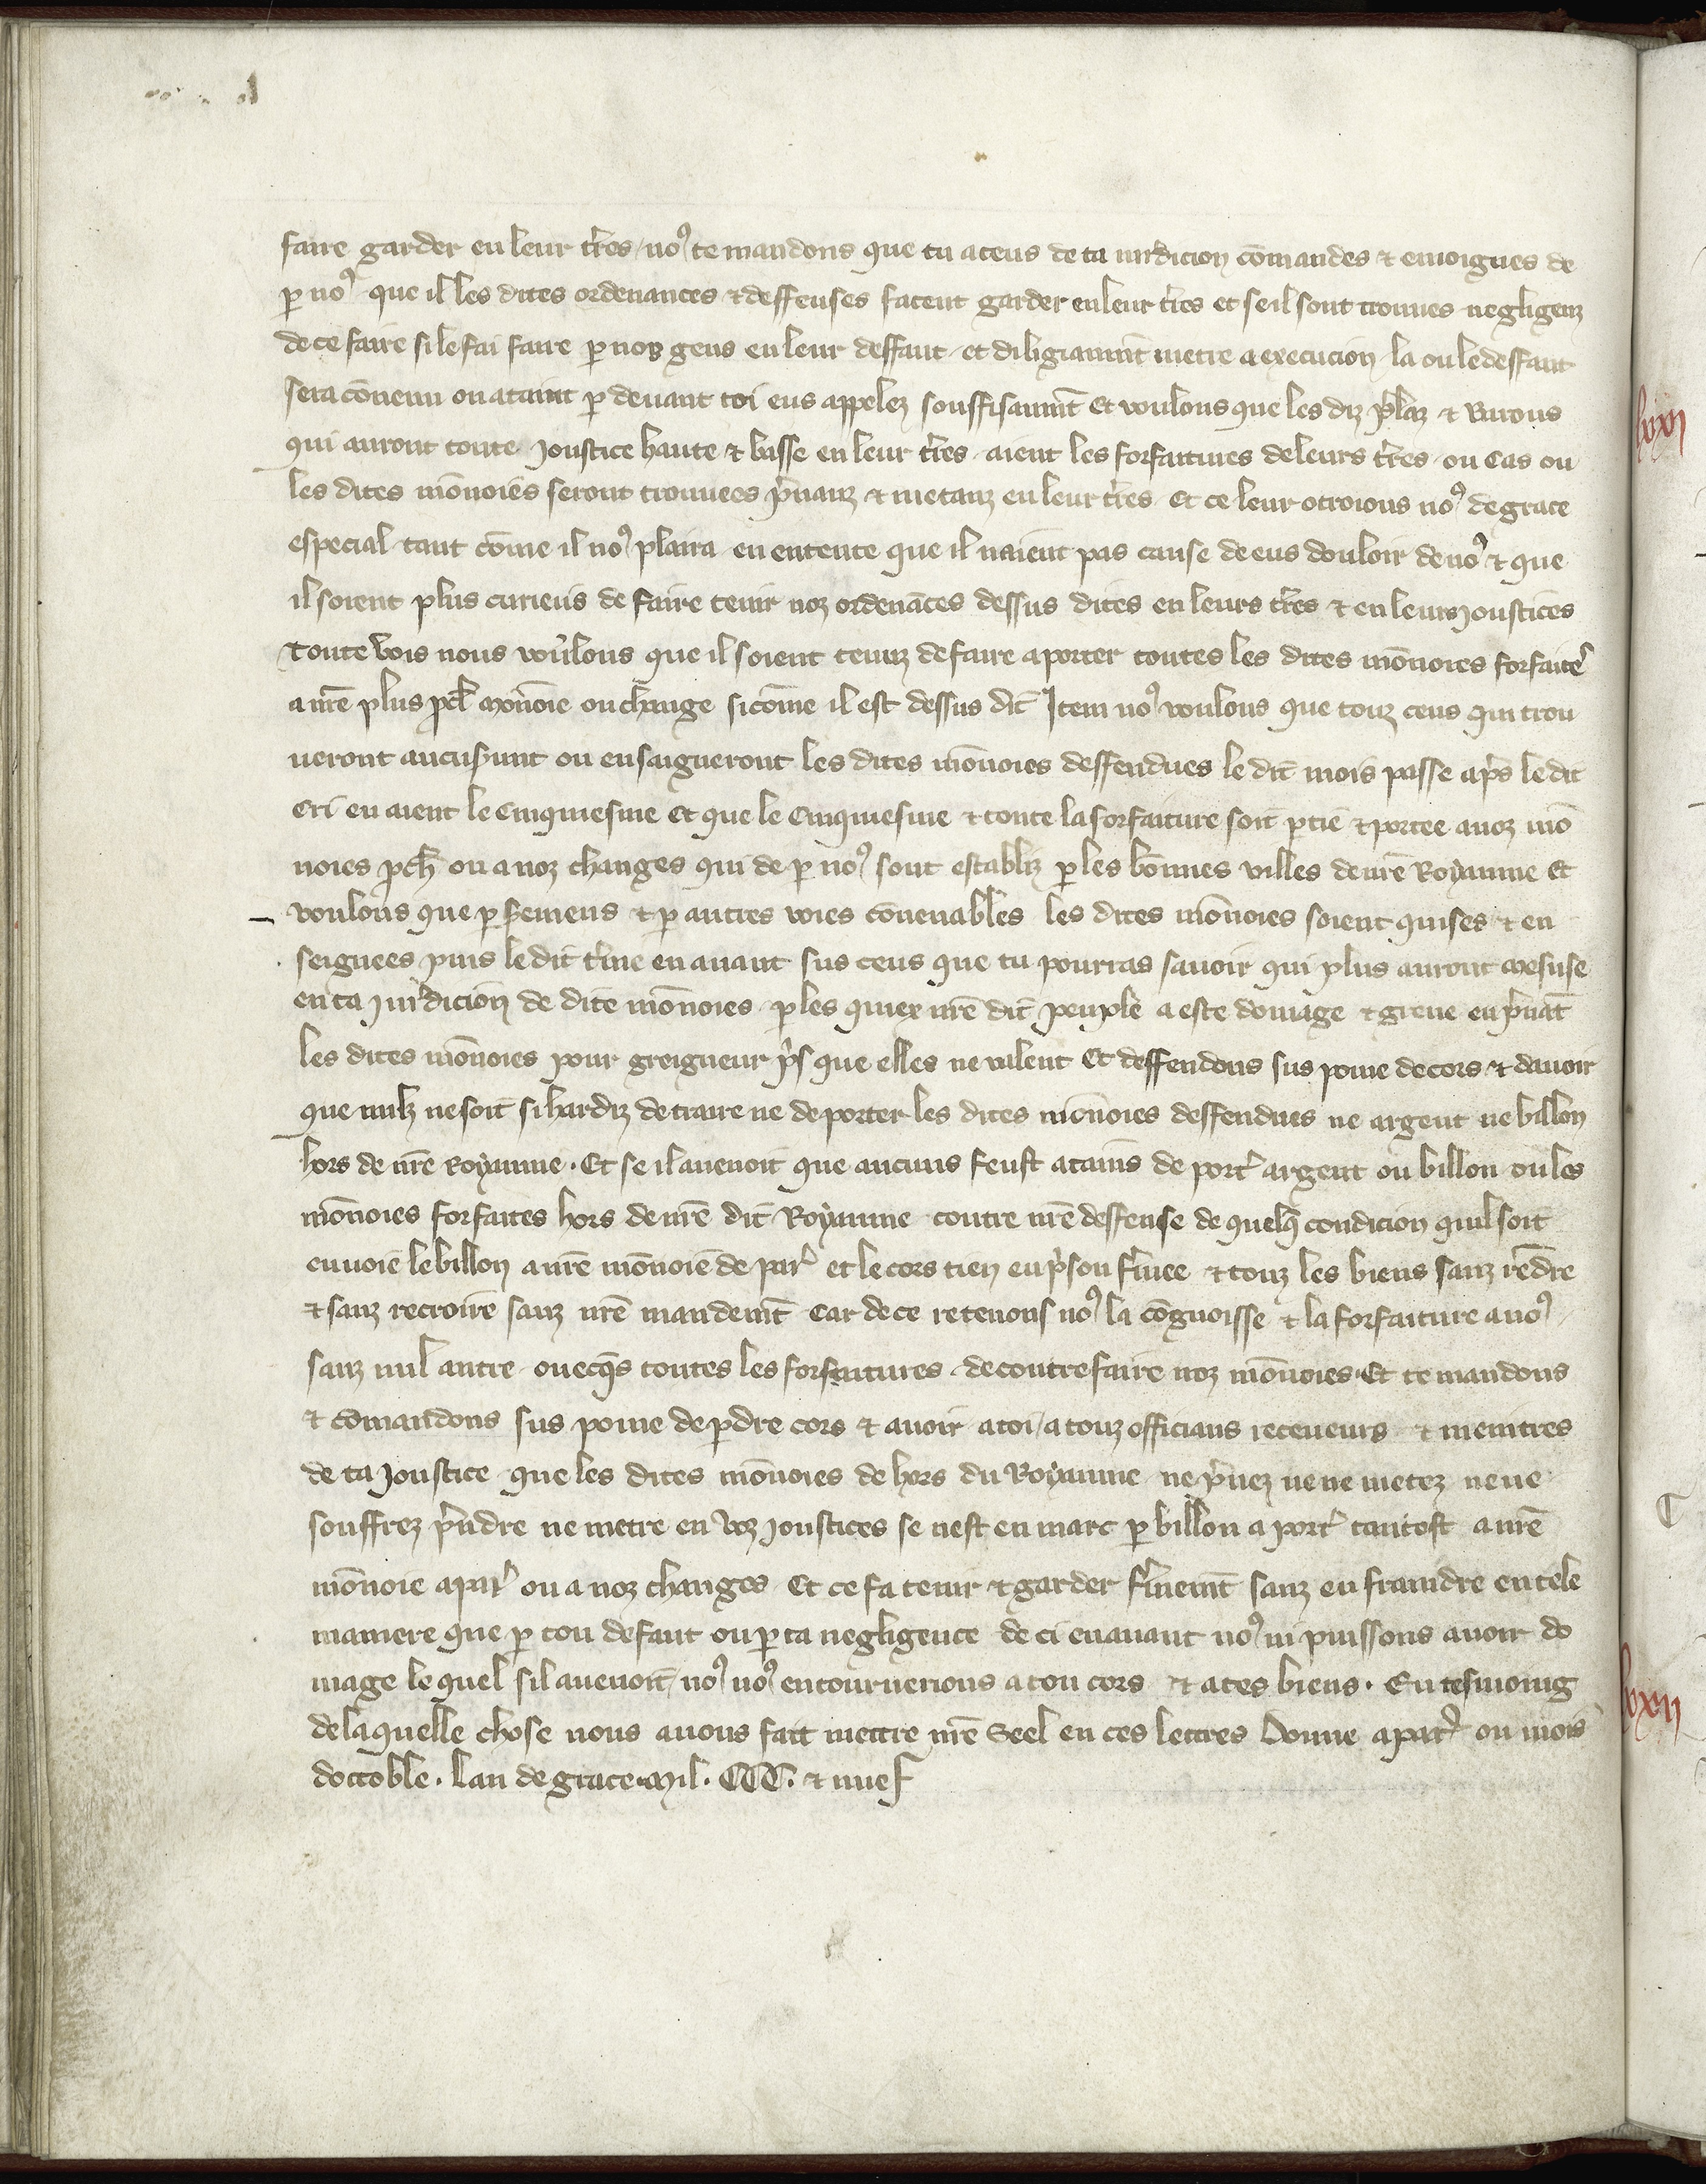 faire garder en leur t̃res / noꝰ te mandons que tu a ceus de ta iurdicion cōmandes ⁊ enioignes de
ꝑ noꝰ que il les dites ordenances ⁊ deffenses facent garder en leur t̃res et se il sont trouues negligenz
de ce faire si le fai faire ꝑ noz gens en leur deffaut et diligiaum̃t metre a execucion la ou le deffaut
sera cōuenu ou ataint ꝑ deuant toi eus appelez souffisaum̃t Et voulons que les diz p̃laz ⁊ Barons
qui auront toute Joustice haute ⁊ basse en leur t̃res aient les forfaitures de leurs t̃res ou cas ou
les dites mōnoies seront trouuees p̃nanz ⁊ metanz en leur t̃res Et ce leur otroions noꝰ de grace
especial tant cōme il noꝰ plaira en entente que il naient pas cause de eus douloir de noꝰ ⁊ que
il soient plus curieus de faire tenir noz ordenāces dessus dites en leurs t̃res ⁊ en leurs Joustices
toute vois nous voulons que il soient tenuz de faire aporter toutes les dites mōnoies forfaites
a nr̃e plus ꝓch̃ monoie ou change si cōme il est dessus dit̃ Item noꝰ voulons que touz ceus qui trou
ueront ou ensaigneront les dites mōnoies deffendues le dit mois passe ap̃s le dit
cri en aient le cinquiesme Et que le cinquiesme ⁊ toute la forfaiture soit ꝑtie ⁊ portee a noz mō
noies ꝓch̃ ou a noz changes qui de ꝑ noꝰ sont establiz ꝑ les bōnnes villes de nr̃e Royaume Et
voulons que ꝑ s̃emens ⁊ ꝑ autres voies cōuenables les dites mōnoies soient quises ⁊ en
seignees puis le dit t̃me en auant sus ceus que tu pourras sauoir qui plus auront mesuse
en ta iuridicion de dite mōnoies ꝑ les quiex nr̃e dit peuple a este domage ⁊ greue en p̃nāt
les dites mōnoies pour greigneur p̃s que elles ne valent Et deffendons sus poine de cors ⁊ dauoir
que nulz ne soit si hardiz de traire ne de porter les dites mōnoies deffendues ne argent ne billon
hors de nr̃e Royaume . Et se il auenoit que aucuns feust atains de port̃ argent ou billon ou les
mōnoies forfaites hors de nr̃e dit Royaume contre nr̃e deffense de quelq̃ condicion quil soit
enuoie le billon a nr̃e mōnoie de par̃ et le cors tien en p̃son f̃mee ⁊ touz les biens sanz rēdre
⁊ sanz recroire sanz nr̃e mandem̃t Car de ce retenons noꝰ la cōgnoisse ⁊ la forfaiture a noꝰ
sanz nul autre ouecq̃s toutes les forfaitures de contrefaire noz mōnoies . Et te mandons
⁊ cōmandons sus poine de ꝑdre cors ⁊ auoir a toi / a touz officiaus receueurs ⁊ menitres
de ta Joustice que les dites mōnoies de hors du Royaume ne p̃nez ne ne metez ne ne
souffrez p̃ndre ne metre en voz Joustices se nest en marc ꝑ billon a port̃ tantost a nr̃e
mōnoie a par̃ ou a noz changes Et ce fa tenir ⁊ garder f̃mem̃t sanz enfraindre en tele
maniere que ꝑ ton defaut ou ꝑ ta negligence de ci en auant noꝰ ni puissons auoir do
mage le quel sil auenoit / noꝰ noꝰ en tournerions a ton cors ⁊ a tes biens . En tesmoing
de la quelle chose nous auons fait mettre nr̃e Seel en ces lettres Donne a par̃ ou mois
doctoble . Lan de grace . mil . CCC . ⁊ nuef
lxxi
lxxii